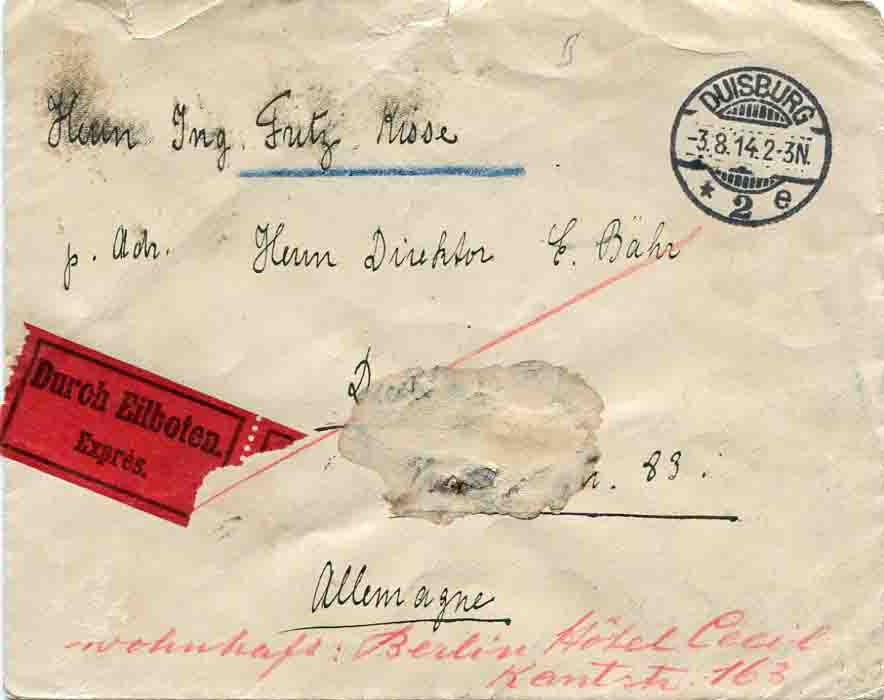 DUISBURG
-3.8.14.2-3N.
* 2 e
Herrn Ing. Fritz Kisse
p. Adr. Herrn Direktor E. Bähr
Durch Eilboten.
Exprès.
83.
Allemagne
wohnhaft: Berlin Hôtel Cecil
Kantstr. 163